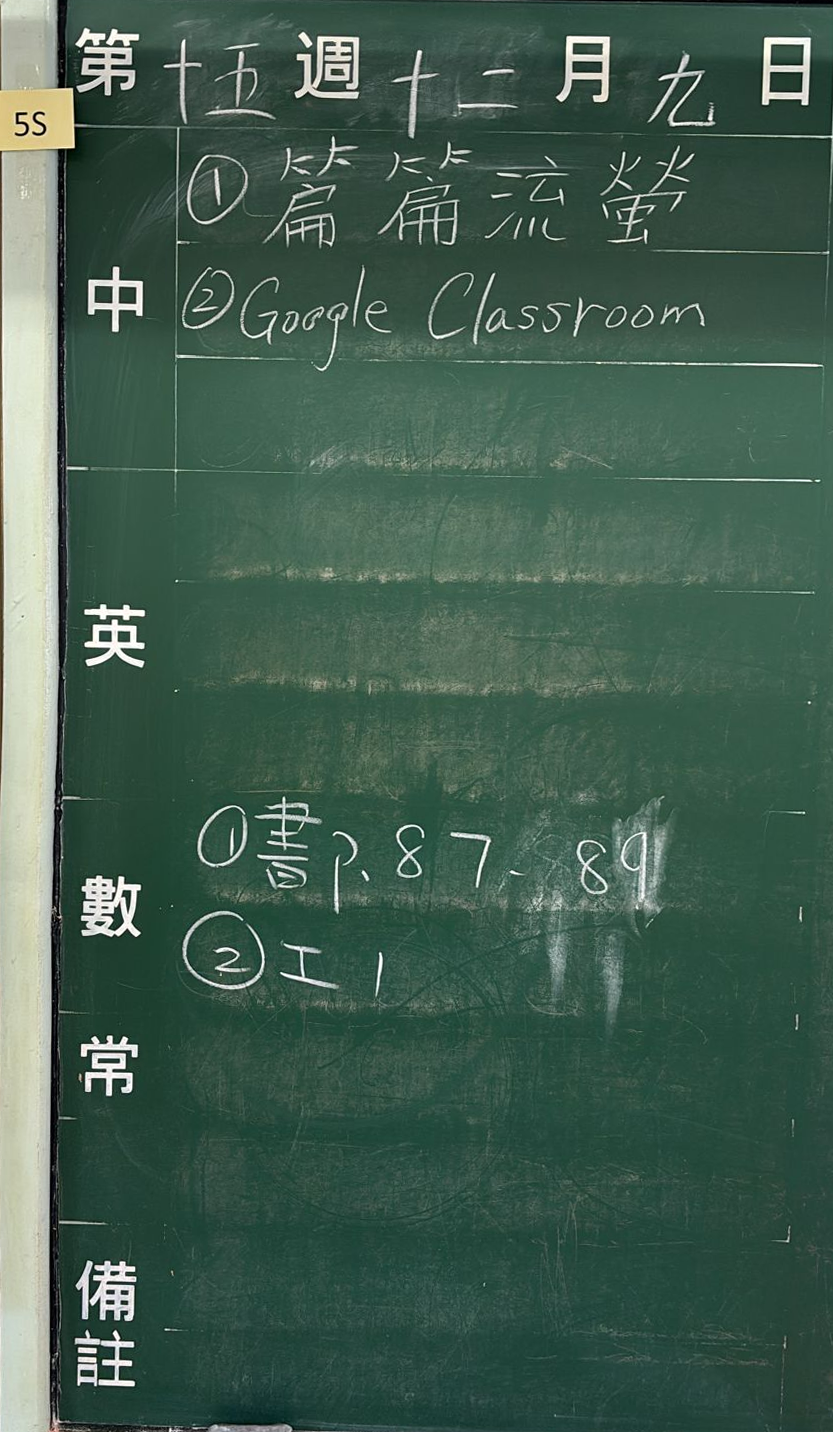 第十五週十二月九日
5S
中
①篇篇流螢
②Google Classroom
英
數
①書p.87-89
②工1
常
備註